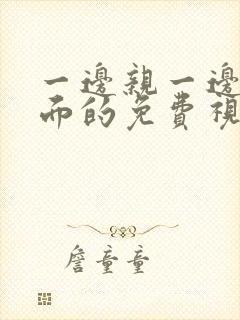 一邊親一邊
而的免費視
詹童童